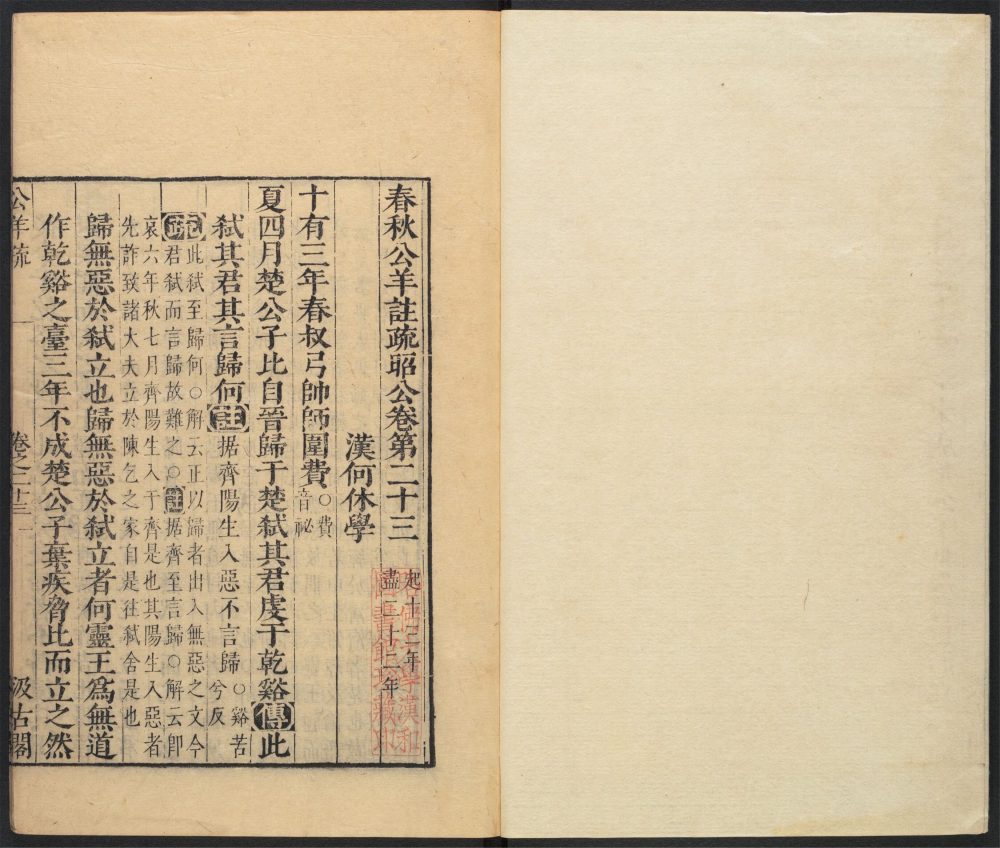 春秋公羊註疏昭公卷第二十三
起十三年
盡二十二年
漢何休學
十有三年春叔弓帥師圍費
○費
音祕
夏四月楚公子比自晉歸于楚弑其君虔于乾谿傳此
弑其君其言歸何註据齊陽生入惡不言歸
○谿苦
兮反
疏此弑至歸何○解云正以歸者出入無惡之文今
君弑而言歸故難之○註据齊至言歸○解云卽
哀六年秋七月齊陽生入于齊是也其陽生入惡者
先詐致諸大夫立於陳乞之家自是往弑舍是也
歸無惡於弑立也歸無惡於弑立者何靈王爲無道
作乾谿之臺三年不成楚公子棄疾脅比而立之然
公羊疏
卷之二十三
一
汲古閣